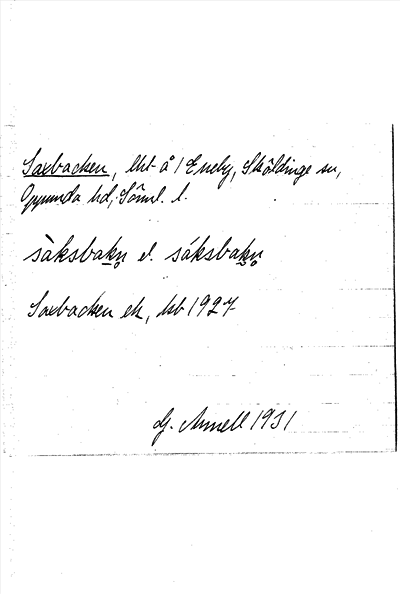 Saxbacken, lht å 1 Eneby, Sköldinge sn,
Oppunda hd, Söml. l.
sàksbakn̥ el. sáksbakn̥
Saxbacken ek, kb 1927
G. Annell 1931